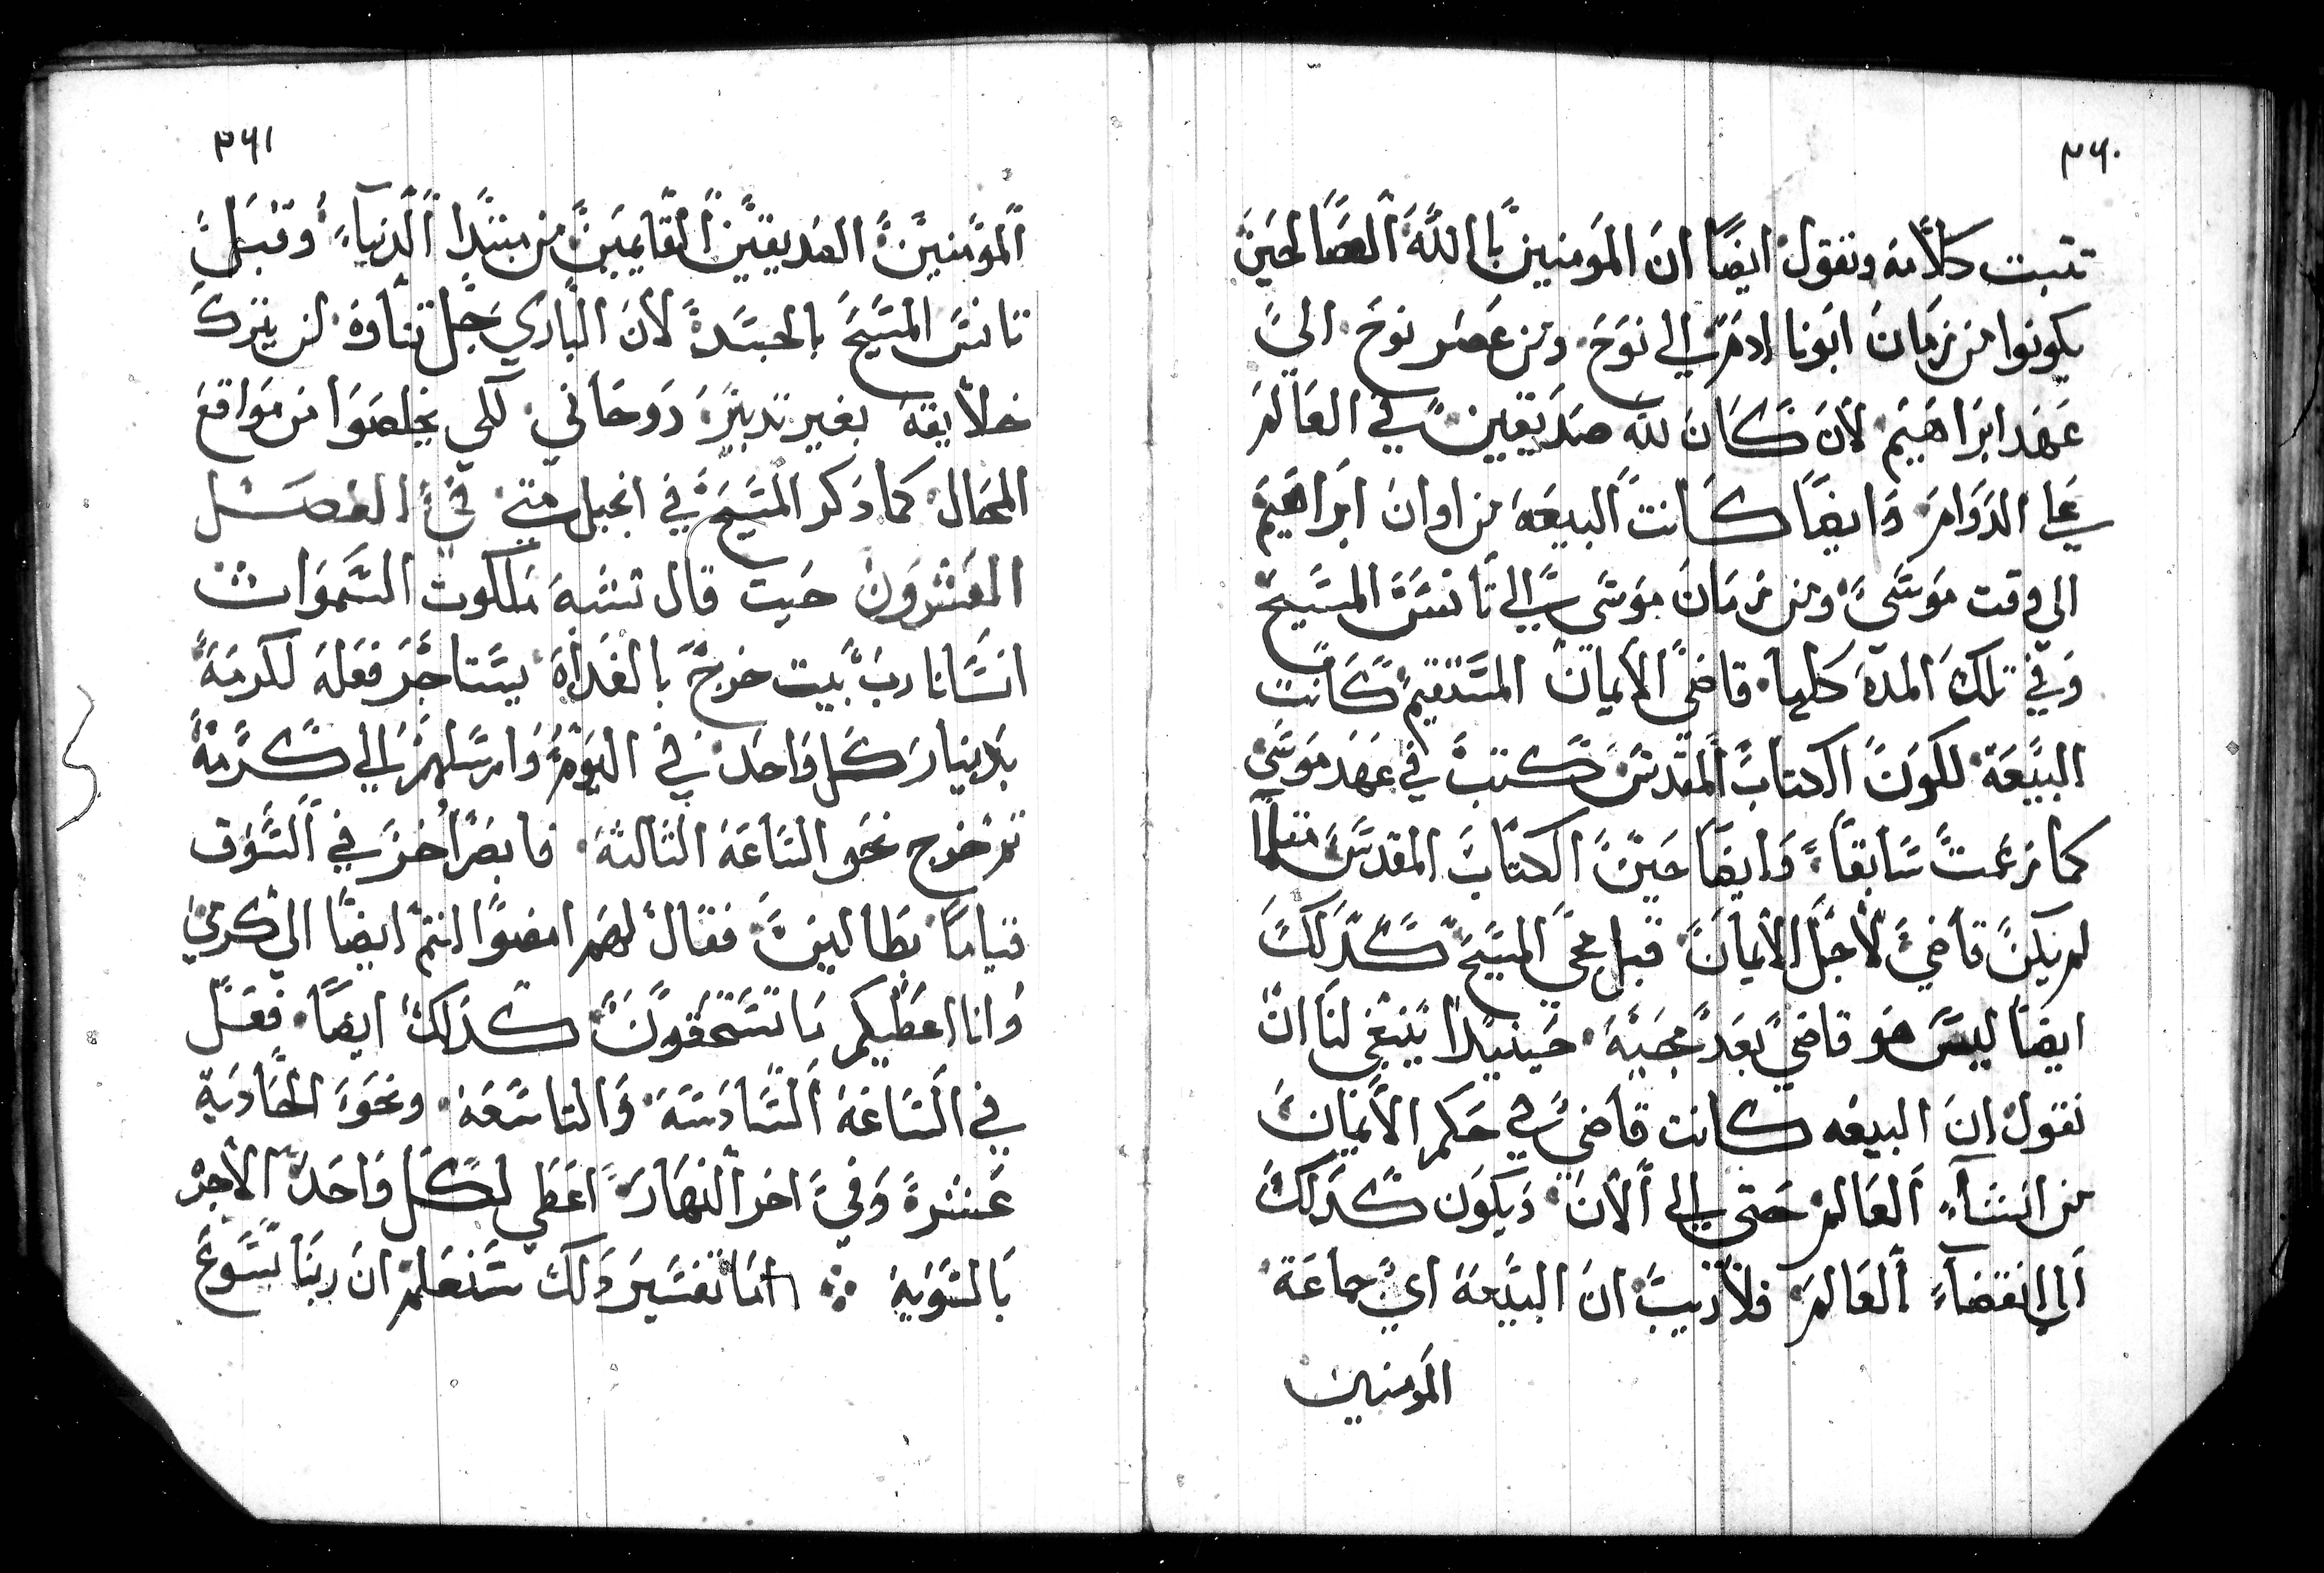 ٣٦٠
تتبت كلامه ونقول ايضًا ان المومنين باالله الصالحين
يكونوا من زمان ابونا ادم الي نوح. ومن عصر نوح الي
عهد ابراهيم. لان كان لله صديقين في العالم
علي الدوام. وايضًا كانت البيعه من اوان ابراهيم
الي وقت موسي. ومن زمان موسي الي تانس المسيح
وفي تلك المده كلها. قاضي الايمان المستقيم كانت
البيعة. لكون الكتاب المقدس كتب في عهد موسي
كما زعمت سابقًا. وايضا حين الكتاب المقدس مثلا
لم يكن قاضي لاجل الايمان قبل مجي المسيح كذلك
ايضا ليس هو قاضي بعد مجيه. حينيدا ينبغي لنا ان
نقول ان البيعه كانت قاضي في حكم الايمان
من انشآء العالم حتي الي الان. ويكون كذلك
الي انقضآء العالم. فلا ريب ان البيعة اي جماعة
المومنين
٣٦١
المومنين الصديقين القايمين من مبتدا الدنيآء. وقبل
تانس المسيح بالجسد لان الباري جل تناوه لن يترك
خلايقه بغير تدبير روحاني. لكي يخلصوا من مواقع
المحال. كما دكر المسيح في انجيل متي في الفصل
العشرون حيت قال تشبه ملكوت السموات
انسانا رب بيت خرج بالغداه يستاجر فعله لكرمه
بدينار كل واحد في اليوم وارسلهم الي كرمه
تم خرج نحو الساعه التالته. فابصر اخر في السوق
قيامًا بطالين. فقال لهم امضوا انتم ايضًا الي كرمي
وانا اعطيكم ما تستحقون كذلك ايضًا. فعل
في الساعه السادسه والتاسعه. ونحو الحاديه
عشرة وفي اخر النهار اعطي لكل واحد الاجر
بالسويه ۞ اما تفسير دلك سنعلم ان ربنا يسوع